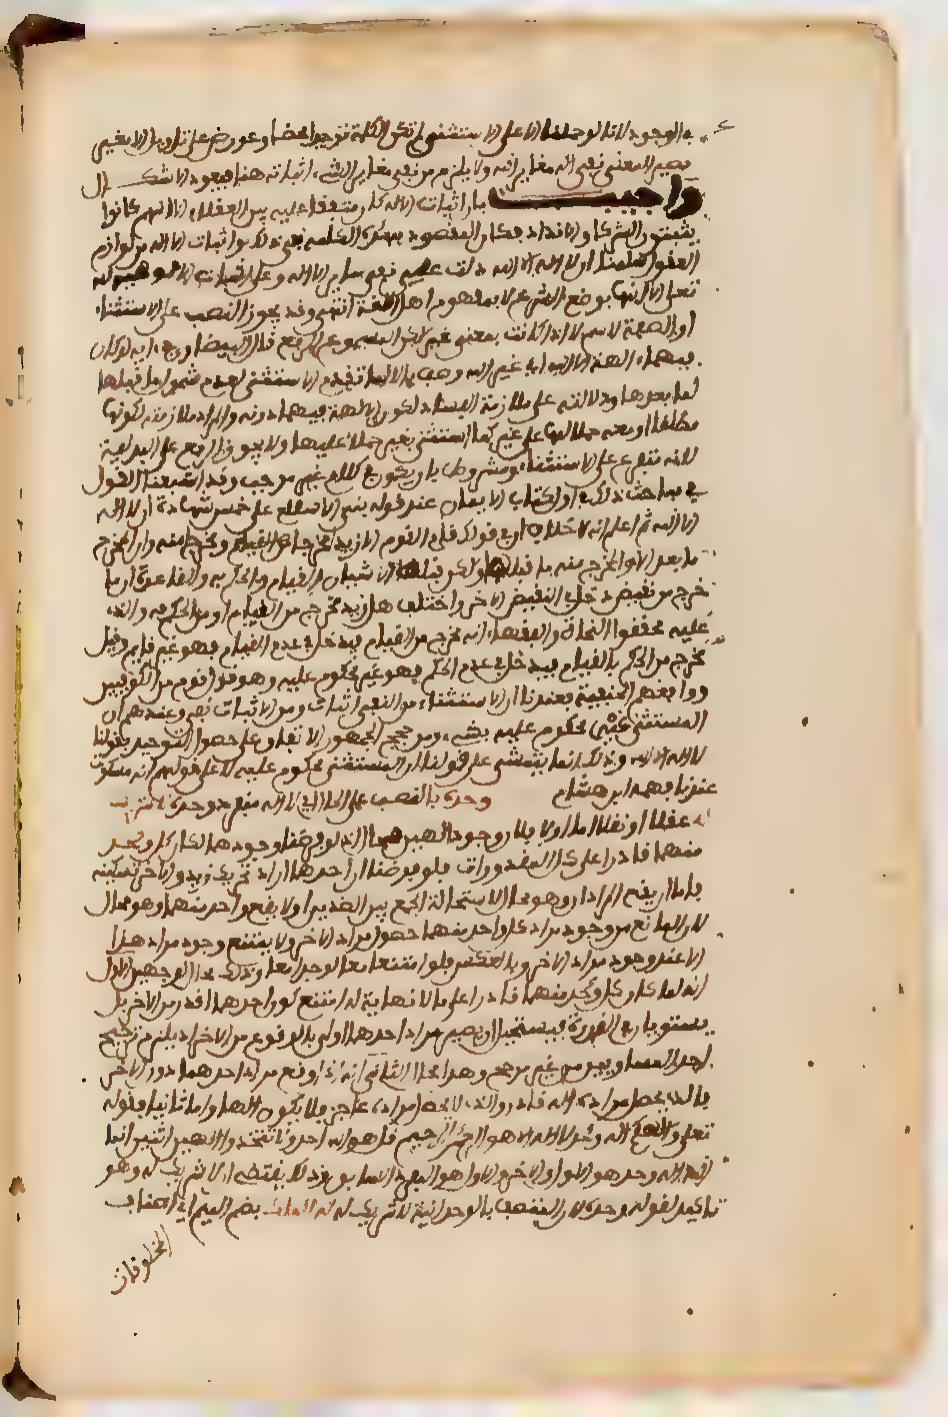 في الوجود لانا لو حملنا الا على الاستثنى لم تكن الكلمة توحيدا محضا وعورض على تاويل الا بغير
يصير المعنى نفي اله مغاير الله ولا يلزم من نفي مغاير الشيء اثباته هنا فيعود الاشكال
واجيب بان اثبات الاله كان متفقا عليه بين العقلاء الا انهم كانوا
يثبتون الشركا والانداد فكان المقصود بهذه الكلمة نفي ذلك واثبات الاله من لوازم
العقول سلمنا ان لا اله الا الله دلت على نفي ساير الالهة وعلى اثبات الالوهية لله
تعلى الا انها بوضع الشرع لا بمفهوم اهل اللغة انتهى وقد يجوز النصب على الاستثناء
او الصفة لاسم لا اذا كانت بمعنى غير لكن المسموع الرفع قال البيضاوي في اية لو كان
فيهما الهة الا الله اي غير الله وصف بالا لما تعذر الاستثنى لعدم شمول ما قبلها
لما بعدها ودلالته على ملازمة الفساد لكون الالهة فيهما دونه والمراد ملازمته لكونها
مطلقا او معه حملا لها على غير كما استثني بغير حملا عليها ولا يجوز الرفع على البدلية
لانه متفرع على الاستثناء ومشروط بان يكون في كلام غير موجب وقد اشبعنا القول
في مباحث ذلك في اول كتاب الايمان عند قوله بني الاسلام على خمس شهادة ان لا اله
الا الله ثم اعلم انه لا خلاف ان في قولك قام القوم الا زيد مخرجا ومخرجا منه وان المخرج
ما بعد الا والمخرج منه ما قبلها ولكن قبل الا شيئان القيام والحكم به والقاعدة ان ما
خرج من نقيض دخل في النقيض الاخر واختلف هل زيد مخرج من القيام او من الحكم به والذي
عليه محققوا النحاة والفقهاء انه مخرج من القيام فيدخل في عدم القيام فهو غير قايم وقيل
مخرج من الحكم بالقيام فيدخل في عدم الحكم فهو غير محكوم عليه وهو قول قوم من الكوفيين
ووافقهم الحنفية فعندنا ان الاستثناء من النفي اثبات ومن الاثبات نفي وعندهم ان
المستثنى غير محكوم عليه بشيء ومن حجج الجمهور الاتفاق على حصول التوحيد بقولنا
لا اله الا الله وذلك انما يتمشى على قولنا ان المستثنى محكوم عليه لا على قولهم انه مسكوت
عنه فافهمه ابن هشام وحده بالنصب على الحال اي لا اله منفرد وحده لا شريك
له عقلا ونقلا اما اولا فلان وجود الهين محال اذ لو فرضنا وجودهما لكان كل واحد
منهما قادرا على كل المقدورات فلو فرضنا ان احدهما اراد تحريك زيد والاخر تسكينه
فاما ان يقع المرادان وهو محال لاستحالة الجمع بين الضدين او لا يقع واحد منهما وهو محال
لان المانع من وجود مراد كل واحد منهما حصول مراد الاخر ولا يمتنع وجود مراد هذا
الا عند وجود مراد الاخر وبالعكس فلو امتنعا معا لوجدا معا وذلك محال لوجهين الاول
انه لما كان كل واحد منهما قادرا على ما لا نهاية له امتنع كون احدهما اقدر من الاخر بل
يستويان في القدرة فيستحيل ان يصير مراد احدهما اولى بالوقوع من الاخر اذ يلزم ترجيح
احد المتساويين من غير مرجح وهذا محال الثاني انه اذا وقع مراد احدهما دون الاخر
فالذي يحصل مراده اله قادر والذي لا يحصل مراده عاجز فلا يكون الها واما ثانيا فلقوله
تعلى والهكم اله واحد لا اله الا هو الرحمن الرحيم قل هو الله احد ولا تتخذوا الهين اثنين انما
هو اله واحد هو الاول والاخر والاول هو الفرد السابق وذلك يقتضي ان لا شريك له وهو
تاكيد لقوله وحده لان المتصف بالوحدانية لا شريك له له الملك بضم الميم اي اصناف
المخلوقات